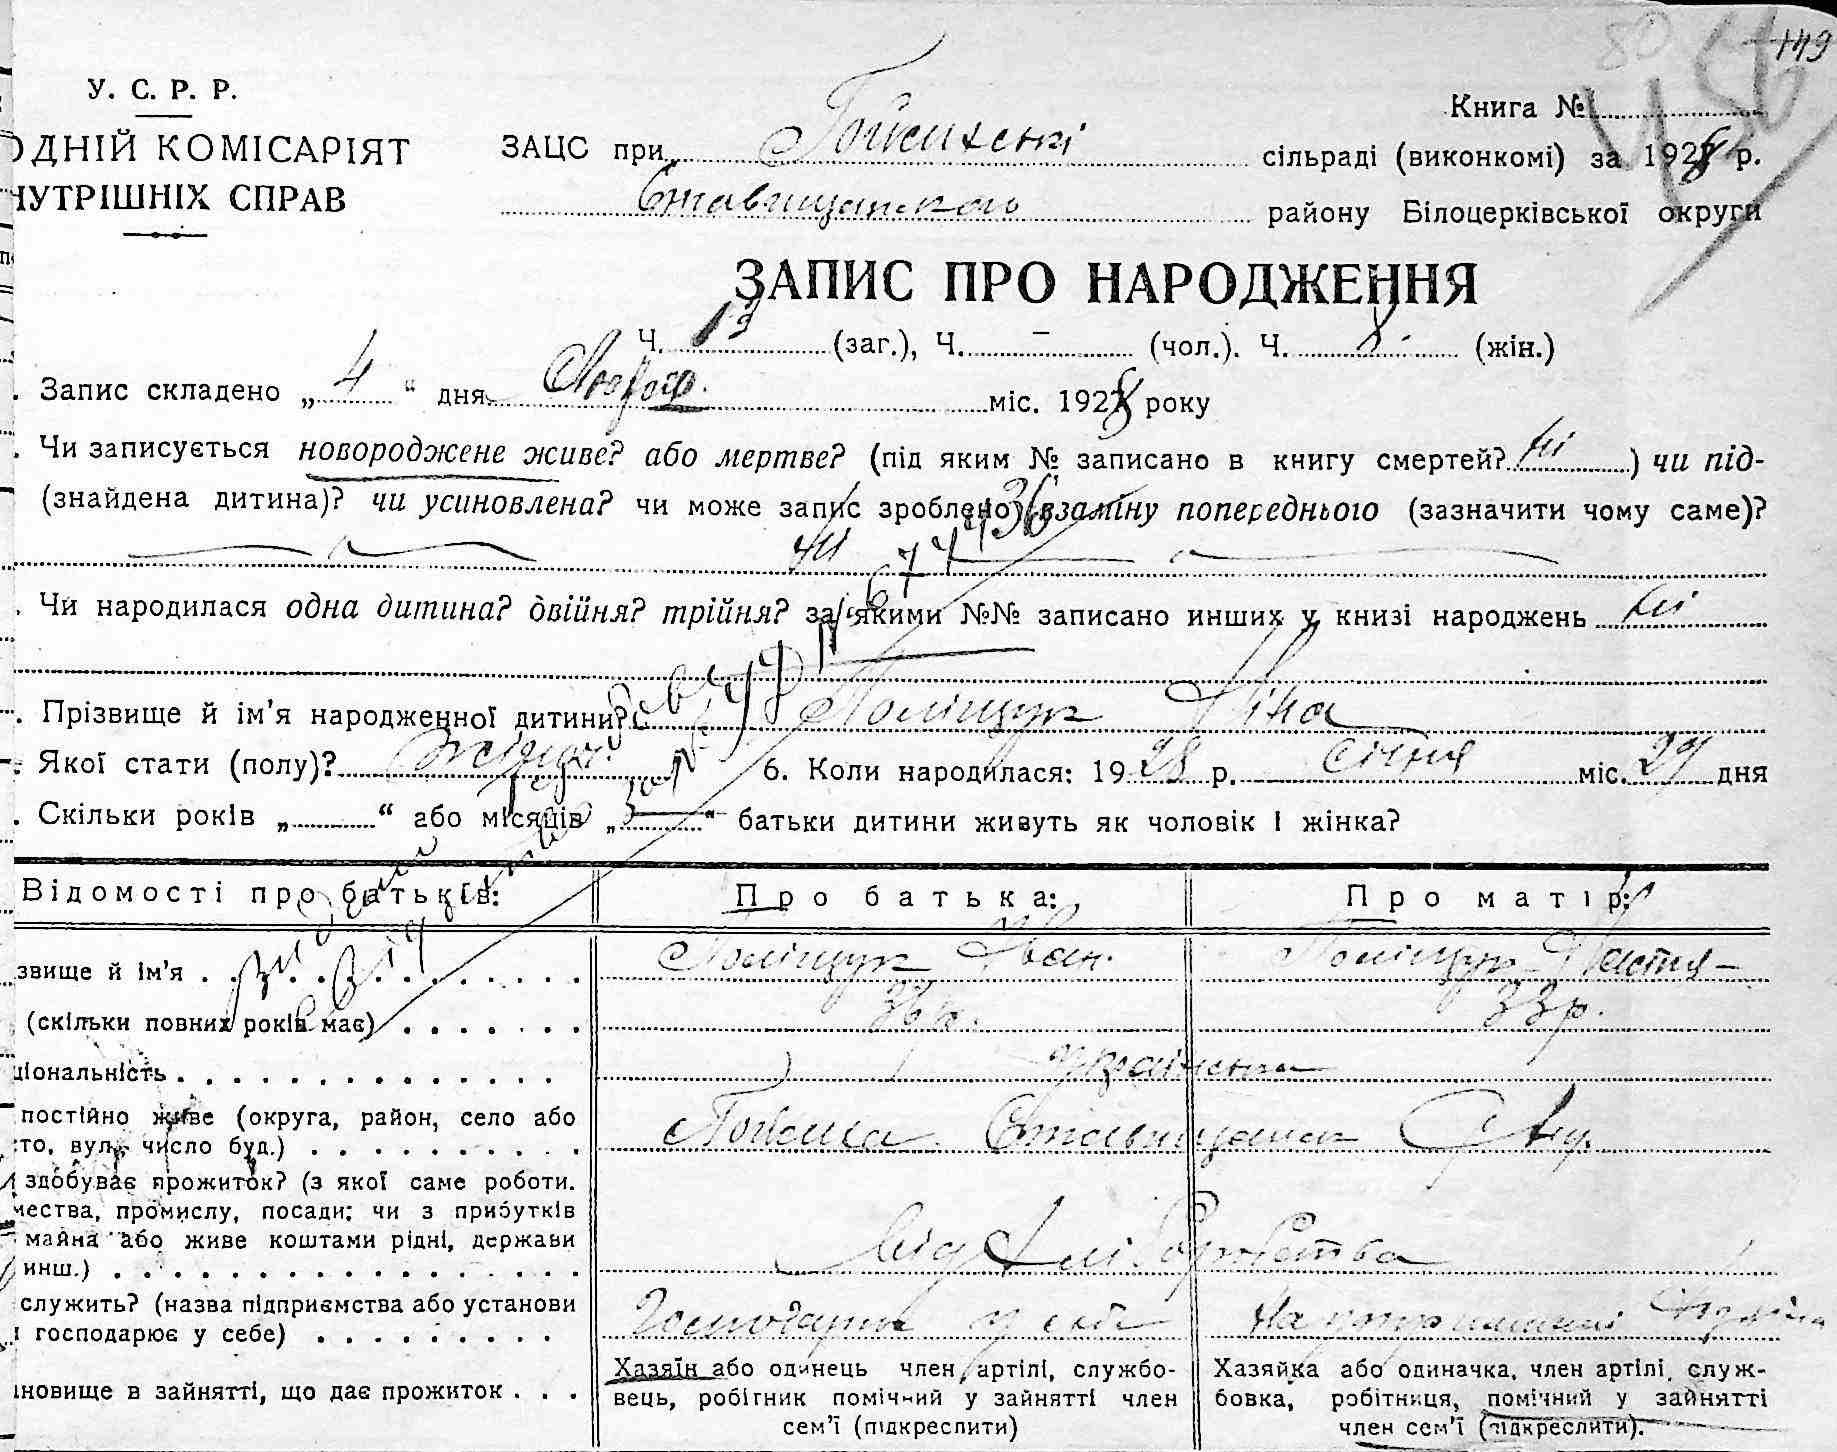 149
У. С. Р. Р.
Книга №
ОДНІЙ КОМІСАРІЯТ
ЗАЦС при сільраді (виконкомі) за 1928 р.
НУТРІШНІХ СПРАВ
району Білоцерківської округи
ЗАПИС ПРО НАРОДЖЕННЯ
Ч. 13 (заг.), Ч. – (чол.). Ч. (жін.)
. Запис складено „ 4 “ дня Лютого міс. 1928 року
. Чи записується новороджене живе? або мертве? (під яким № записано в книгу смертей? ні ) чи під-
(знайдена дитина)? чи усиновлена? чи може запис зроблено взаміну попереднього (зазначити чому саме)?
ні
. Чи народилася одна дитина? двійня? трійня? за якими №№ записано инших у книзі народжень ні
. Прізвище й ім'я народженної дитини? Поліщук Ніна
. Якої стати (полу)? жіноч. 6. Коли народилася: 1928 р. січня міс. 29 дня
. Скільки років „ “ або місяців „ “ батьки дитини живуть як чоловік і жінка?
Відомості про батьків: Про батька: Про матір:
звище й ім'я . . . Поліщук Іван. Поліщук Настя
(скільки повних років має) . . . 33р.
ціональність . . . українська
постійно живе (округа, район, село або
то, вул., число буд.) . . .
здобуває прожиток? (з якої саме роботи.
мества, промислу, посади; чи з прибутків
майна або живе коштами рідні, держави
инш.) . . . від хліборобства
служить? (назва підприємства або установи
господарює у себе) . . . Господарює у себе На утриманні
Хазяїн або одинець член артілі, службо- Хазяйка або одиначка, член артілі, служ-
новище в зайнятті, що дає прожиток . . . вець, робітник помічний у зайнятті член бовка, робітниця, помічний у зайнятті
сем'ї (підкреслити) член сем'ї (підкреслити).